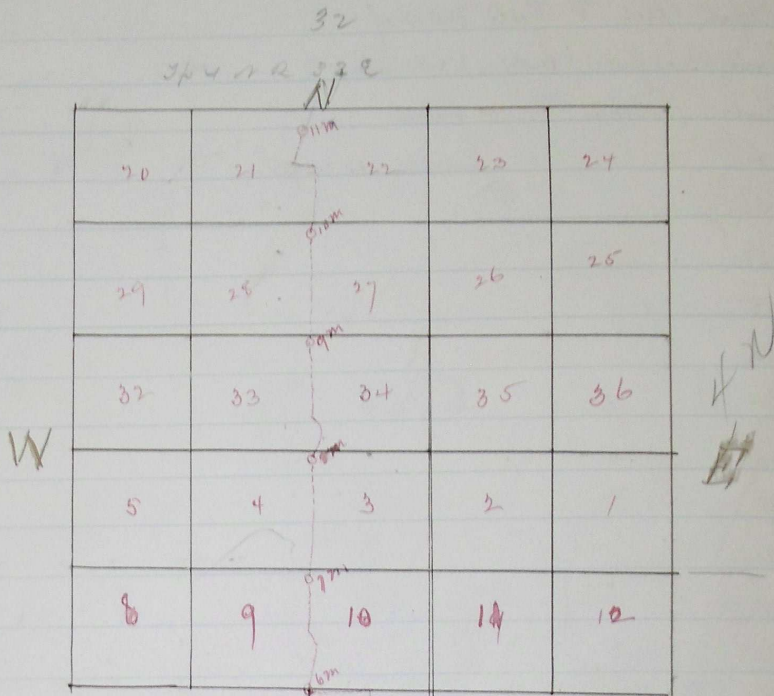 32
N
11m
20 21 22 23 24
10m
29 28 27 26 25
9m
32 33 34 35 36
4 N
W E
8m
5 4 3 2 1
7m
8 9 10 11 12
6m